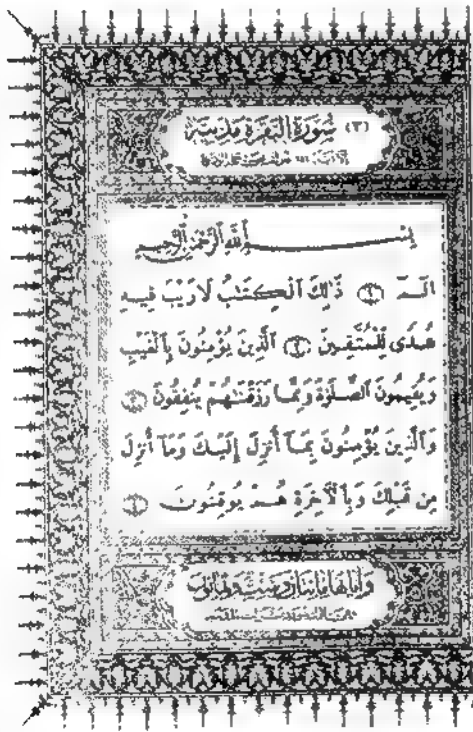 (٢) سُورَةُ البَقَرَةِ مَدَنِيَّةٌ
بِسْمِ ٱللَّهِ ٱلرَّحْمَٰنِ ٱلرَّحِيمِ
الٓمٓ ١ ذَٰلِكَ ٱلْكِتَٰبُ لَا رَيْبَ فِيهِ
هُدًى لِّلْمُتَّقِينَ ٢ ٱلَّذِينَ يُؤْمِنُونَ بِٱلْغَيْبِ
وَيُقِيمُونَ ٱلصَّلَوٰةَ وَمِمَّا رَزَقْنَٰهُمْ يُنفِقُونَ ٣
وَٱلَّذِينَ يُؤْمِنُونَ بِمَآ أُنزِلَ إِلَيْكَ وَمَآ أُنزِلَ
مِن قَبْلِكَ وَبِٱلْأَخِرَةِ هُمْ يُوقِنُونَ ٤
وَآيَاتُهَا مَائَتَانِ وَسِتٌّ وَثَمَانُونَ